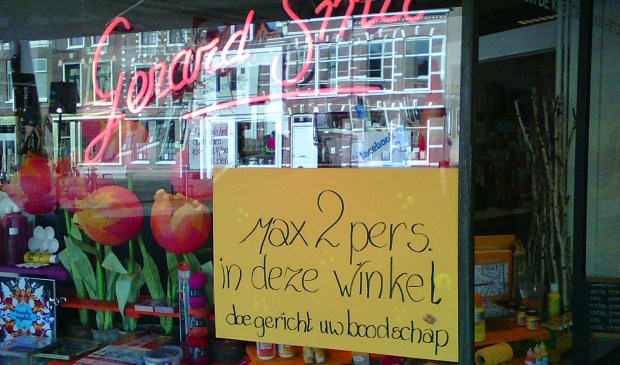 Gerard Smit
Max 2 pers.
in deze winkel
doe gericht uw boodschap
facebook